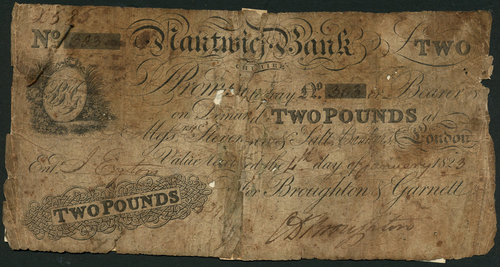 No. 303 Nantwich Bank £ TWO
CHESHIRE
BG
I Promise to pay No. 303 or Bearer
on Demand TWO POUNDS at
Messrs Stevenson & Salt Bankers London
Value received the 4th day of January 1823
Entd. For Broughton & Garnett
TWO POUNDS
Broughton